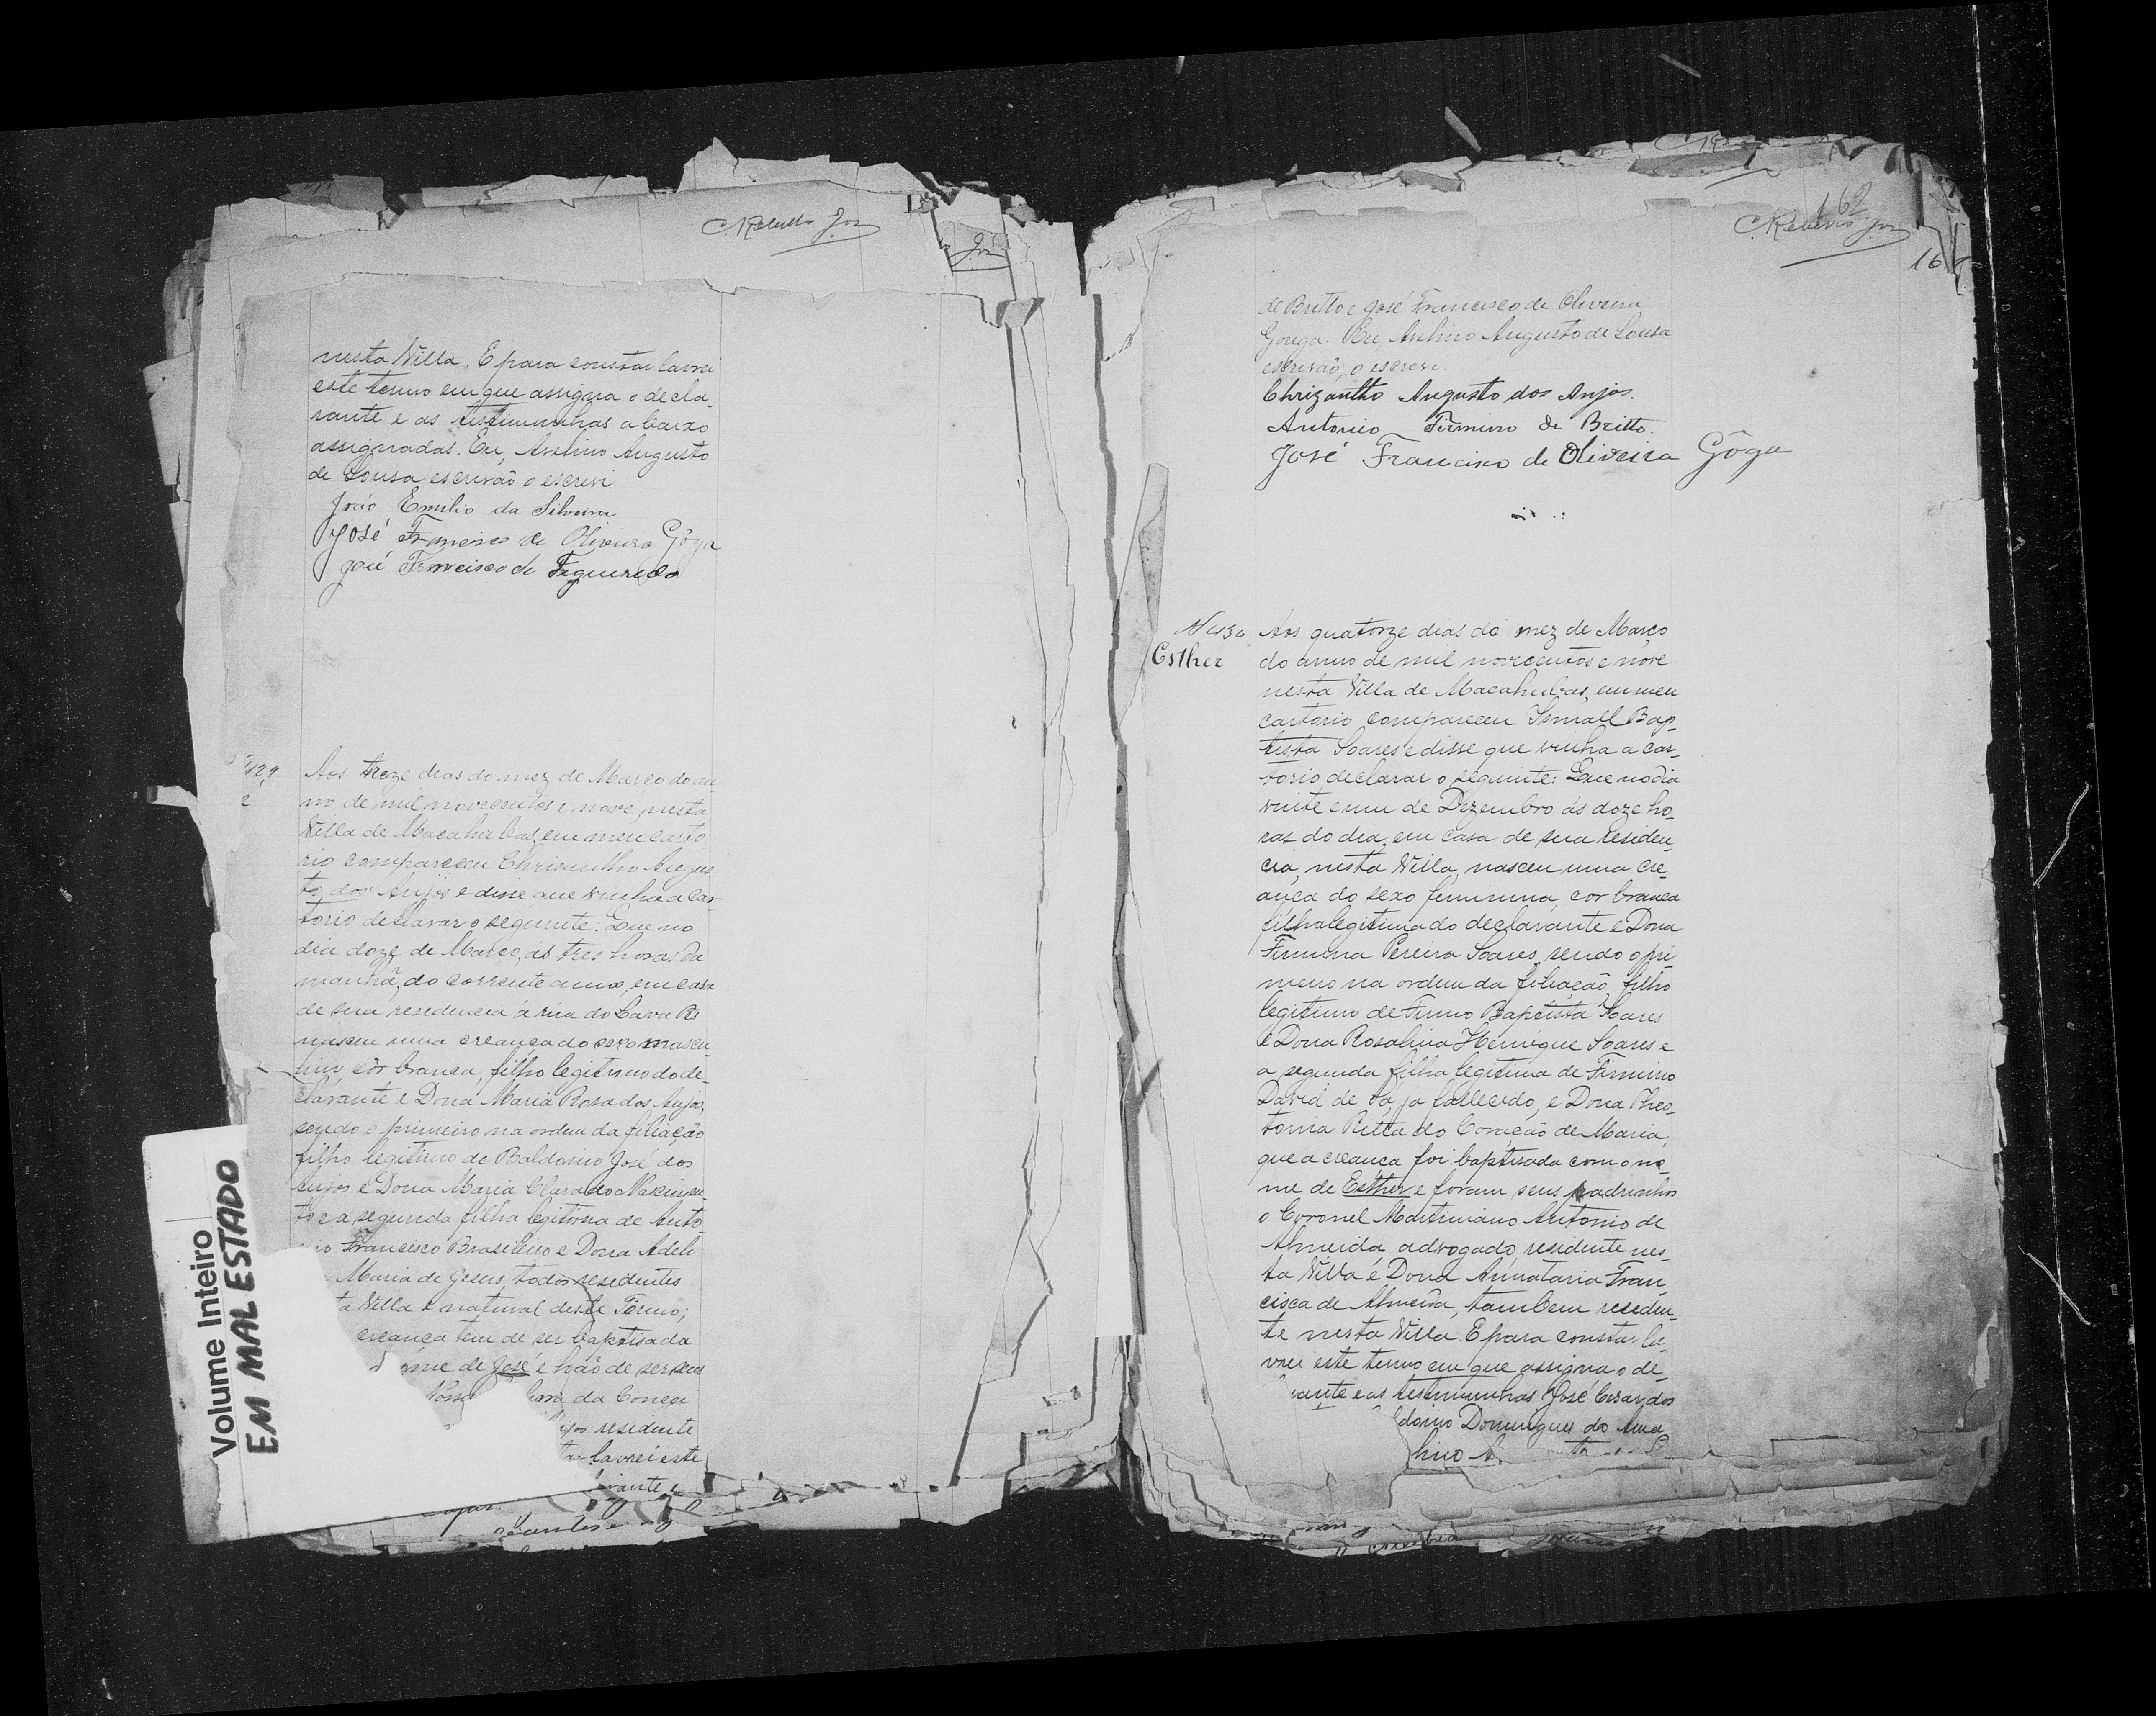 nesta Villa. E para constar lavrei
este termo em que assigna o decla-
rante e as testimunhas abaixo
assignadas. Eu, Avelino Augusto
de Sousa escrivão o escrevi
João Emilio da Silveira
José Francisco de Oliveira Gôga
José Francisco de Figueredo
429
Aos treze dias do mez de Março do an
no de mil novecentos e nove, nesta
Villa de Macahubas, em meu carto
rio compareceu Chrisantho Augus
to dos Anjos e disse que vinha a car
torio declarar o seguinte: Que no
dia doze de Março, ás tres horas da
manhã, do corrente anno, em casa
de sua residencia á rua do Lava Pés
nasceu uma creança do sexo mascu-
lino côr branca, filho legitimo do de-
clarante e Dona Maria Rosa dos Anjos,
sendo o primeiro na ordem da filiação
filho legitimo de Baldoino José dos
Anjos e Dona Maria Clara do Nascimen-
to e a segunda filha legitima de Anto
nio Francisco Brasileiro e Dona Adeli
Maria de Jesus, todos residentes
ta Villa e natural deste Termo;
creança tem de ser baptisada
nome de José e hão de ser seus
Nossa da Concei
residente
lavrei este
rante e
Volume Inteiro
EM MAL ESTADO
162
16
de Britto e José Francisco de Oliveira
Gouga. Eu, Avelino Augusto de Sousa
escrivão, o escrevi.
Chrizantho Augusto dos Anjos.
Antonio Firmino de Britto.
José Francisco de Oliveira Gôga
N 430
Esther
Aos quatorze dias do mez de Março
do anno de mil novecentos e nove
nesta Villa de Macahubas, em meu
cartorio compareceu Ismael Bap-
tista Soares e disse que vinha a car-
torio declarar o seguinte: Que no dia
vinte e um de Dezembro ás doze ho-
ras do dia, em casa de sua residen-
cia, nesta Villa, nasceu uma cre-
ança do sexo feminina, cor branca
filha legitima do declarante e Dona
Firmina Pereira Soares, sendo o pri
meiro na ordem da filiação, filho
legitimo de Firmo Baptista Soares
e Dona Rosalina Henrique Soares e
a segunda filha legitima de Firmino
David de Sá, já fallecido, e Dona Ritta do Coração de Maria,
que a creança foi baptisada com o no-
me de Esther e foram seus padrinhos
o Coronel Martiniano Antonio de
Almeida, advogado, residente nes-
ta Villa e Dona Fran
cisca de Almeida, tambem residen-
te nesta Villa. E para constar la-
vrei este termo em que assigna o de-
rante e as testimunhas José Cesar dos
doino Domingues do